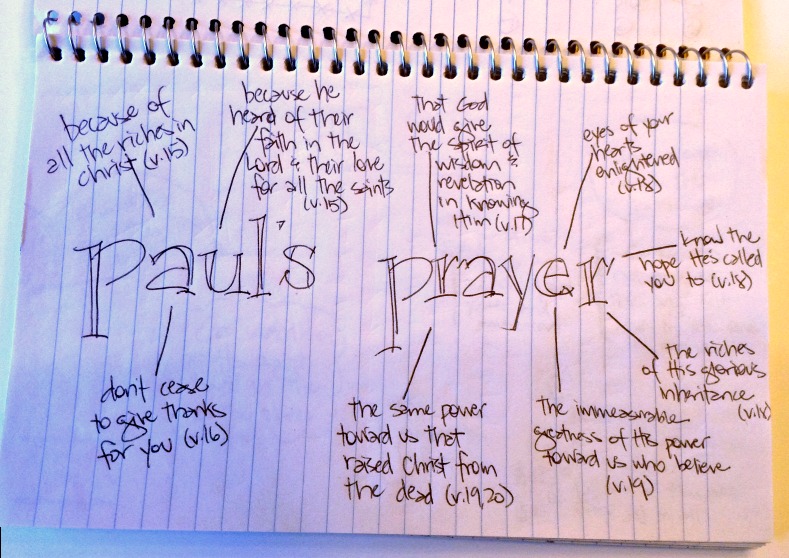 because of
all the riches in
Christ (v.15)
because he
heard of their
faith in the
Lord & their love
for all the saints
(v.15)
that God
would give
the spirit of
wisdom &
revelation
in knowing
Him (v.17)
eyes of your
hearts
enlightened
(v.18)
Paul's prayer
know the
hope He's called
you to (v.18)
the riches
of His glorious
inheritance
(v.18)
don't cease
to give thanks
for you (v.16)
the same power
toward us that
raised Christ from
the dead (v.19,20)
the immeasurable
greatness of His power
toward us who believe
(v.19)